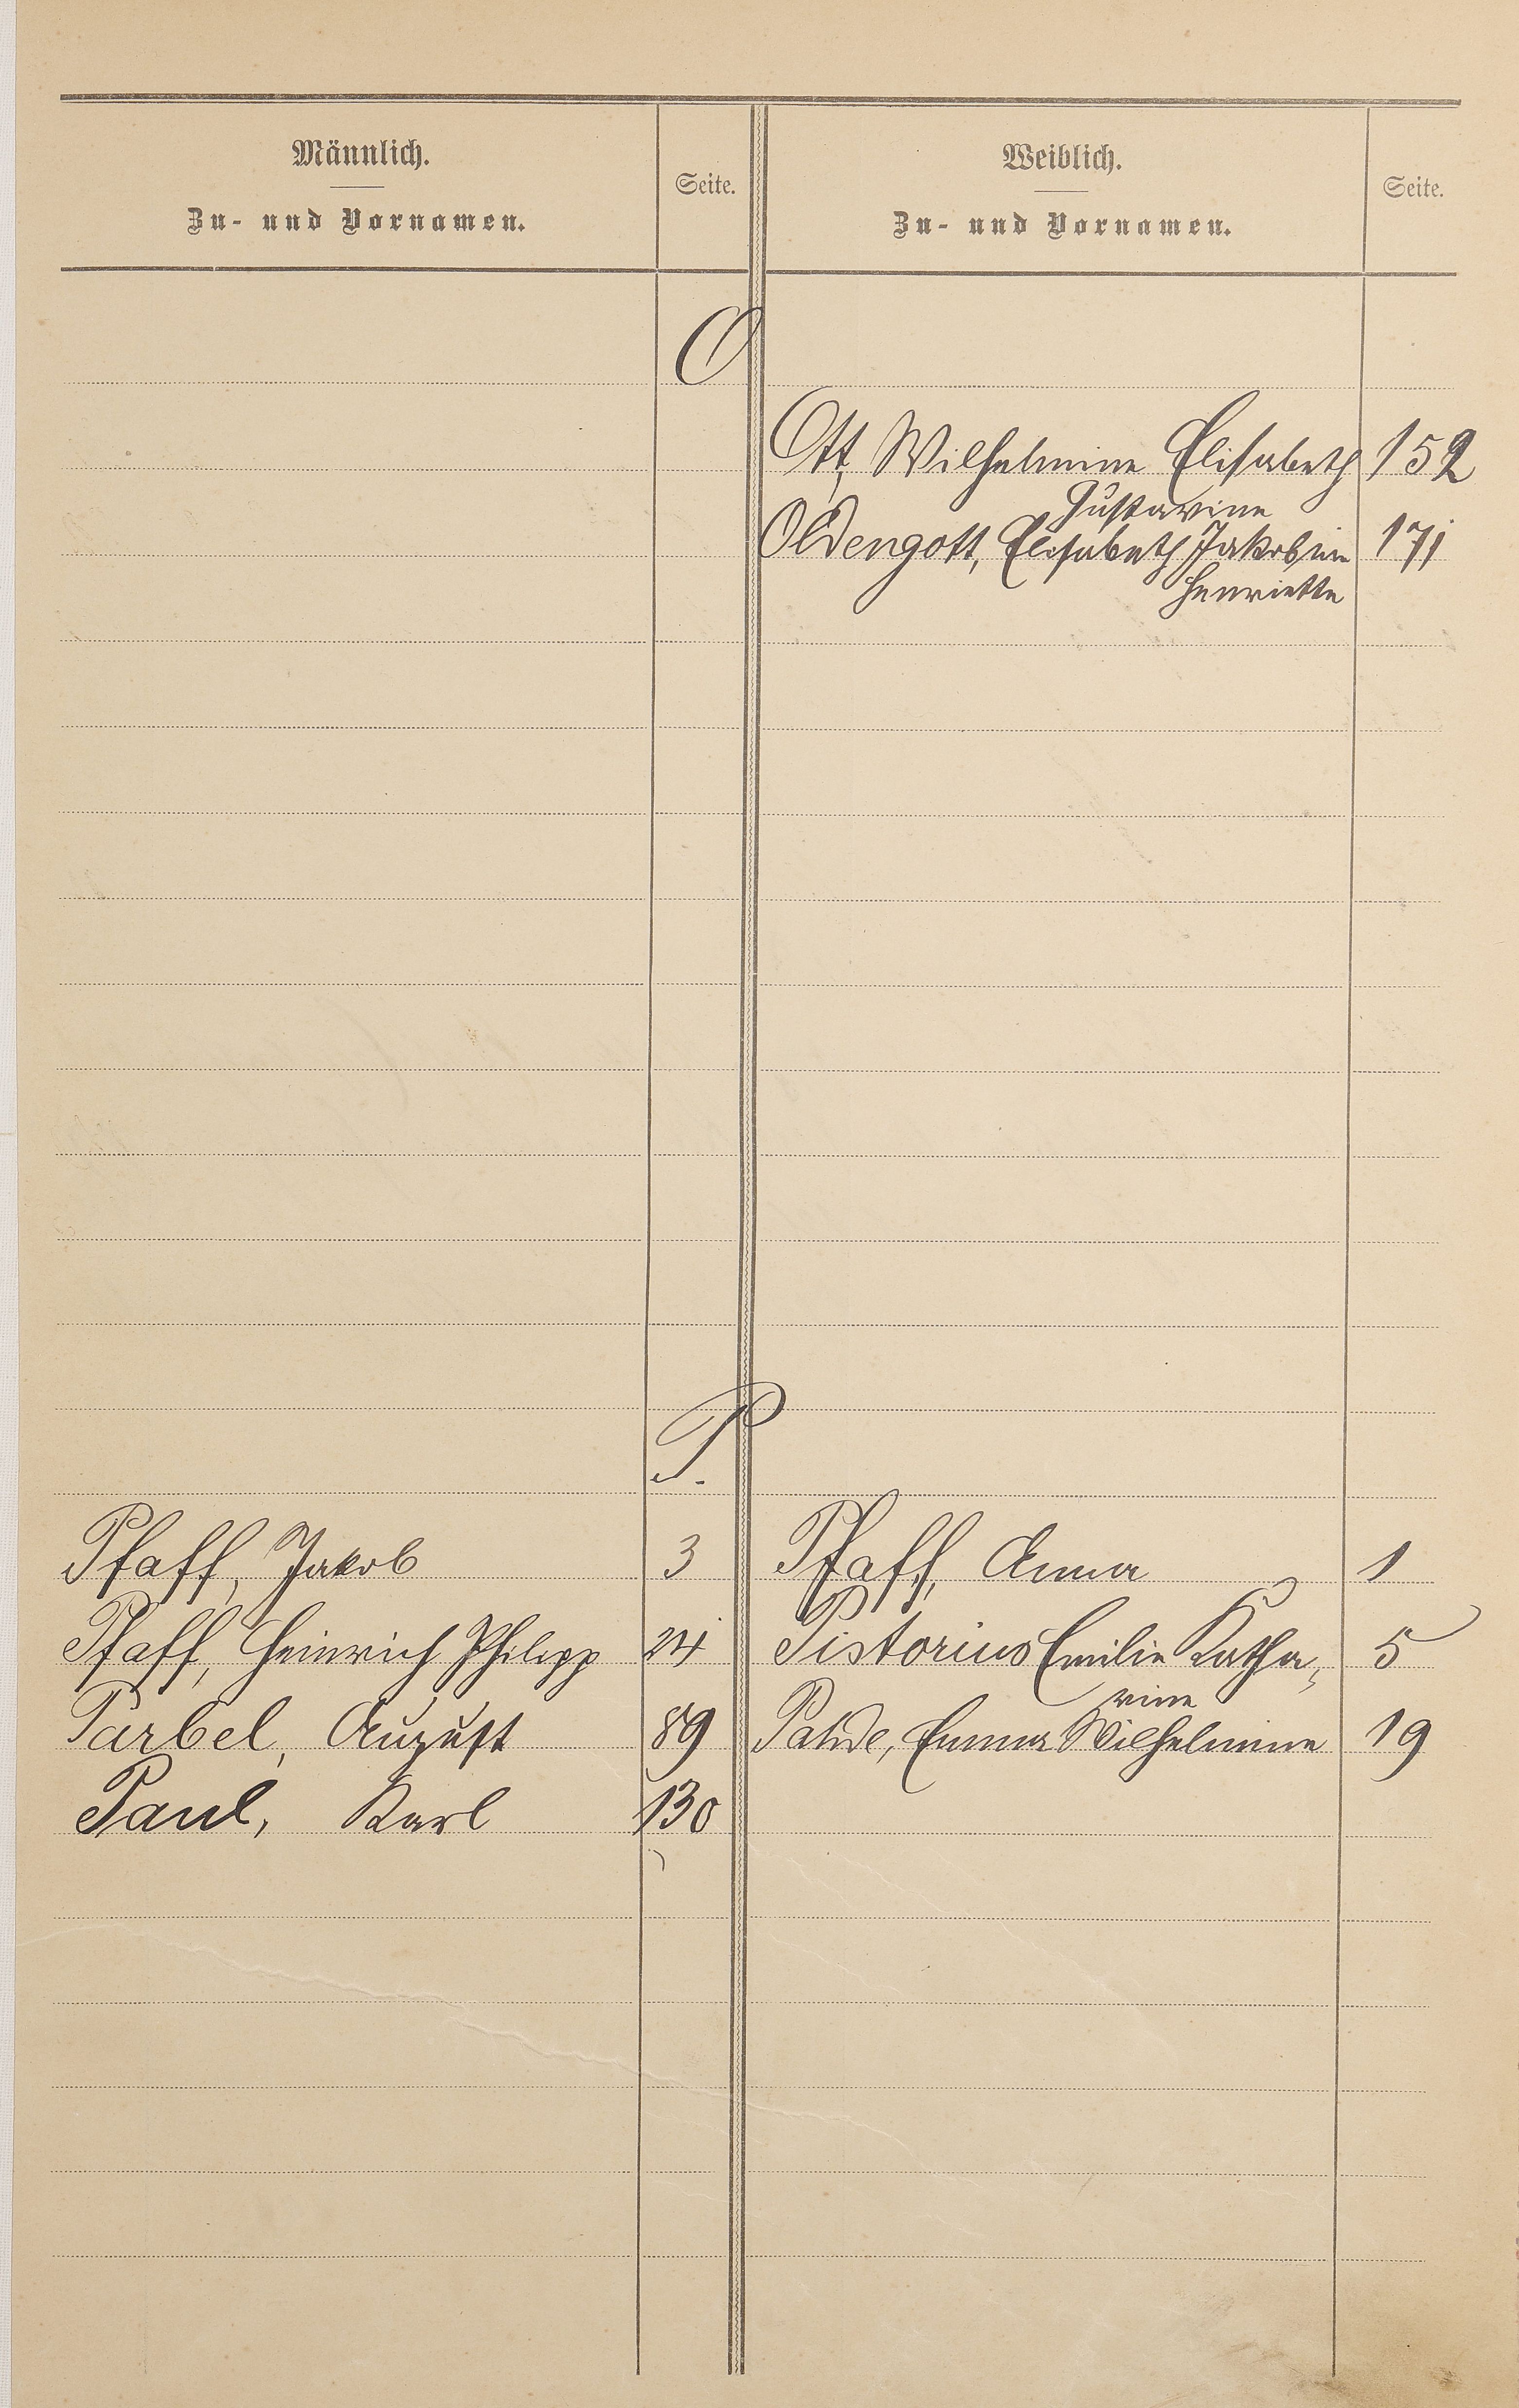 Männlich.
Zu- und Vornamen.
Seite.
Weiblich.
Zu- und Vornamen.
Seite.
O
Ott, Wilhelmine Elisabeth 152
Gustavine
Oldengott, Elisabeth Jakobine 171
Henriette
P.
Pfaff, Jakob 3 Pfaff, Anna 1
Pfaff, Heinrich Philipp 24 Pistorius Emilie Katha, 5
rine
Parbel, August 89 Pahde, Emma Wilhelmine 19
Paul, Karl 130